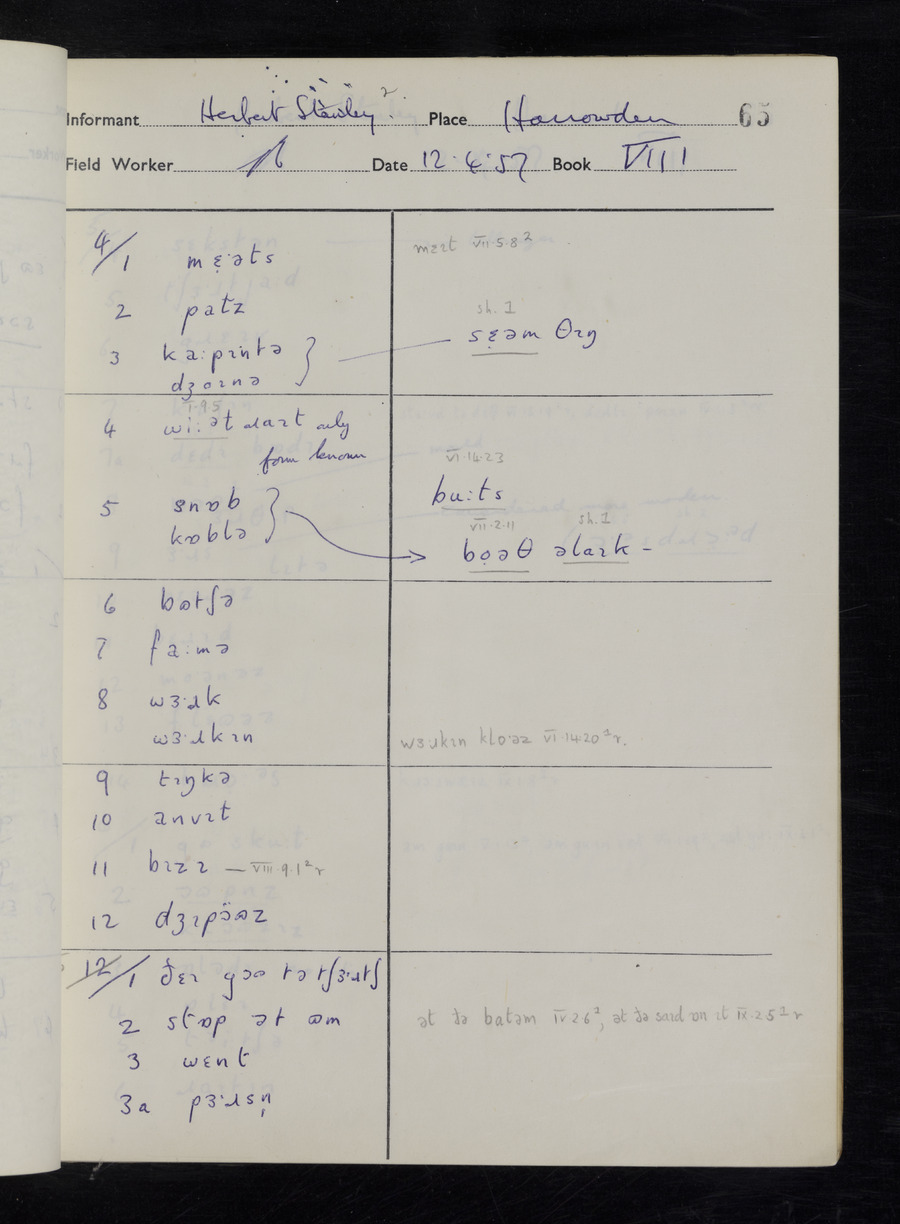 Informant Herbert Stanley² Place Harrowden 65
Field Worker Date 12.4.57 Book VIII
4/1 mɛ̣əts mɛɪt VII.5.8²
2 patz
sh. 1
3 ka:pɪntə } sɛ̣əm θɪŋ
dʒɔɪnə
I.9.5
4 wi:ət only
form known
VI.14.23
5 snɒb } bu:ts
kɒblə
VII.2.11 sh.1
bọəθ əlaɪk -
6 bɷtʃə
7 fa:mə
8 wɜ·ɹk
wɜ·ɹkɪn wɜ·ɹkɪn klo·əz VI.14.20¹r.
9 tɪŋkə
10 anvɪt
11 bɪzɪ — VIII.9.1²r
12 dʒɪpɔ̈ɷz
12/1 ðɛɪ gɔɷ tə tʃɜ·ɹtʃ
2 stɒp ət ɷm ət ðə batəm IV.2.6², ət ðə saɪd ɒn ɪt IX.2.5¹r
3 wɛnt
3a pɜ·ɹsn̩